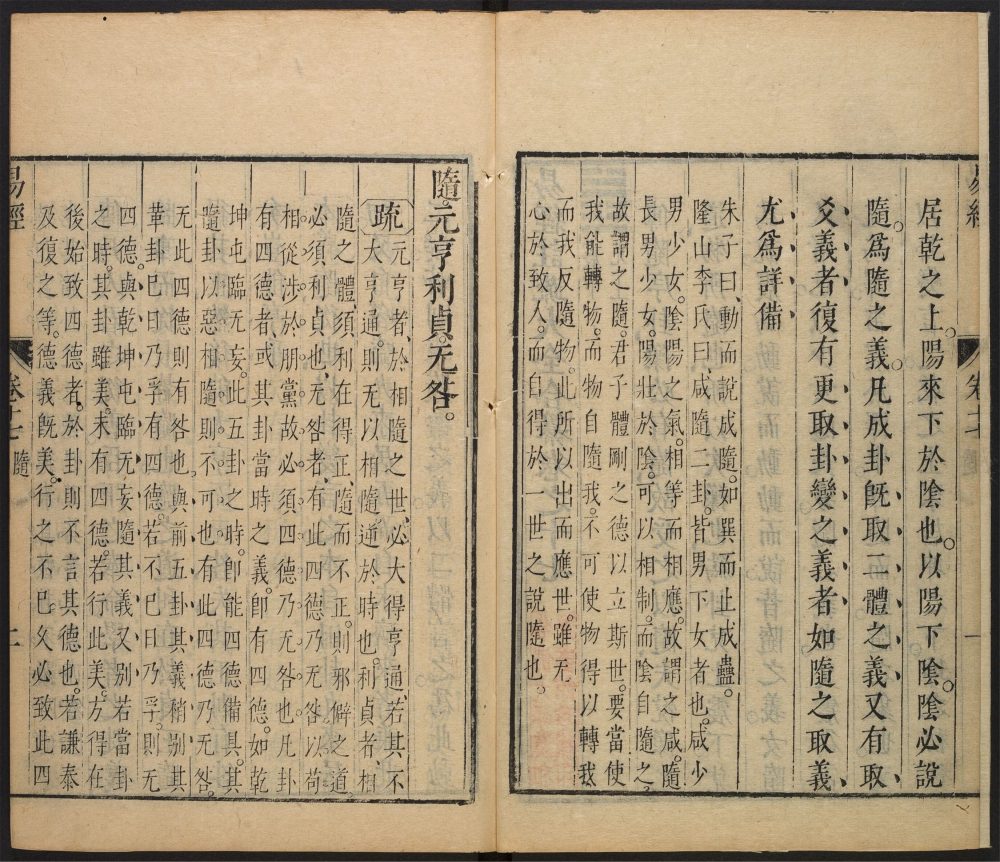 居乾之上。陽來下於陰也。以陽下陰。陰必說
隨。爲隨之義。凡成卦既取二體之義。又有取
爻義者。復有更取卦變之義者。如隨之取義
尤爲詳備
朱子曰、動而說成隨。如巽而止成蠱。
隆山李氏曰、咸隨二卦。皆男下女者也。咸少
男少女。陰陽之氣。相等而相應。故謂之咸。隨
長男少女。陽壯於陰。可以相制。而陰自隨之。
故謂之隨。君子體剛之德以立斯世。要當使
我能轉物。而物自隨我。不可使物得以轉我
而我反隨物。此所以出而應世。雖无
心於致人。而自得於一世之說隨也。
易經
卷十七
隨
二
隨。元亨利貞。无咎。
疏 元亨者、於相隨之世、必大得亨通、若其不
大亨通。則无以相隨、逆於時也。利貞者、相
隨之體、須利在得正、隨而不正。則邪僻之道
必須利貞也、无咎者、有此四德乃无咎、以苟
相從涉於朋黨、故必須四德乃无咎也。凡卦
有四德者、或其卦當時之義。即有四德。如乾
坤屯臨无妄。此五卦之時。即能四德備具。其
隨卦以惡相隨。則不可也。有此四德乃无咎。
无此四德則有咎也。與前五卦其義稍別。其
革卦巳日乃孚有四德。若不巳日乃孚。則无
四德。與乾坤屯臨无妄隨其義又別。若當卦
之時。其卦雖美。未有四德。若行此美。方得在
後始致四德者。於卦則不言其德也。若謙泰
及復之等。德義既美。行之不巳。久必致此四